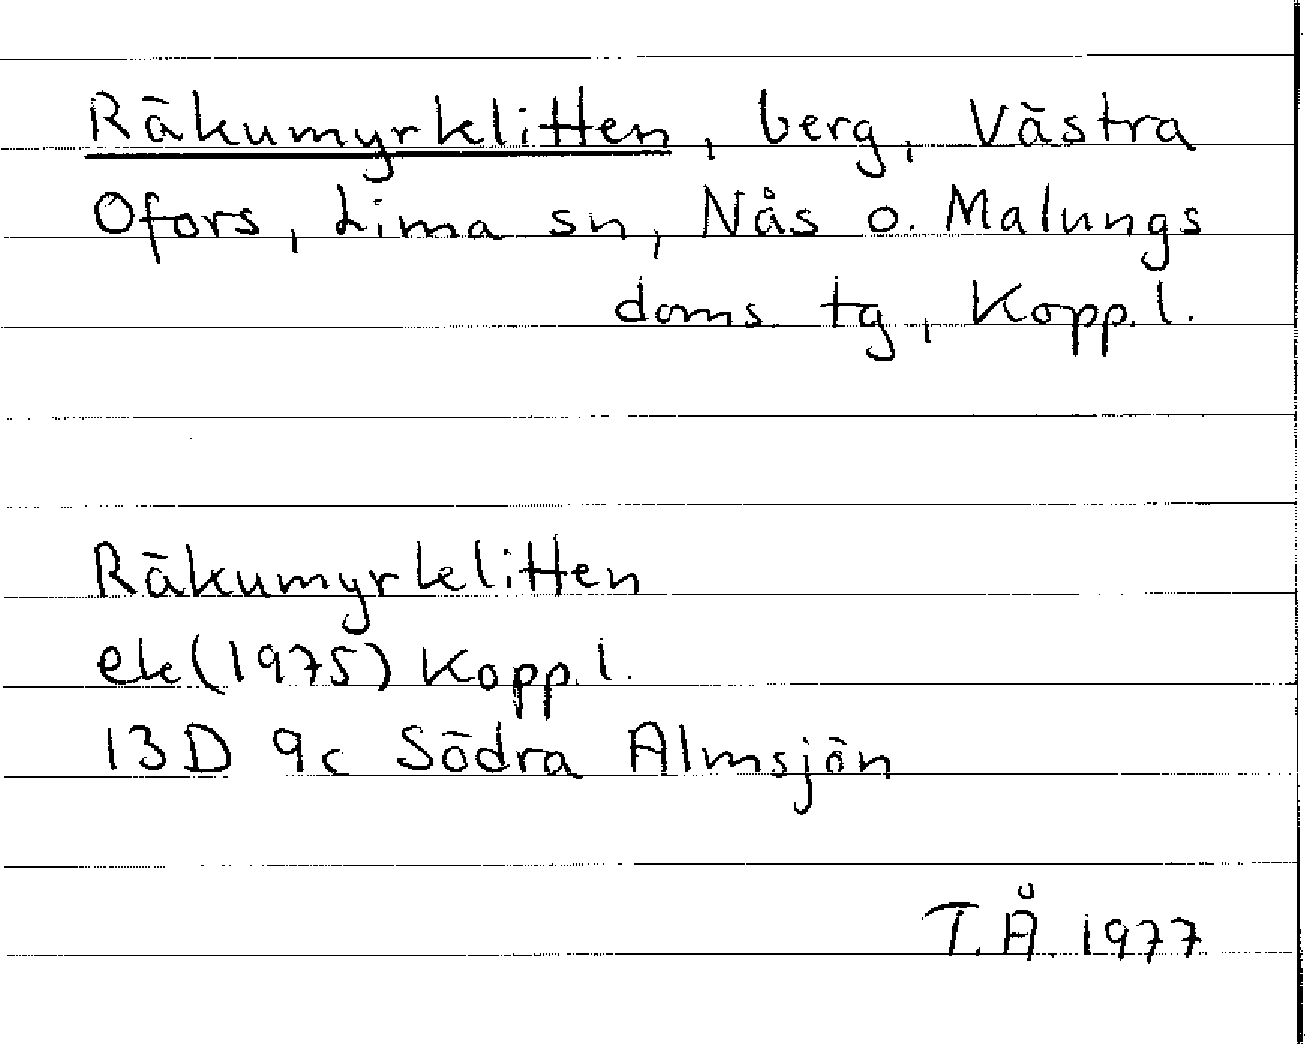 Räkumyrklitten, berg, Västra
Ofors, Lima sn, Nås o. Malungs
doms. tg, Kopp. l.
Räkumyrklitten
ek(1975) Kopp. l.
13D 9c Södra Almsjön
T.Å. 1977